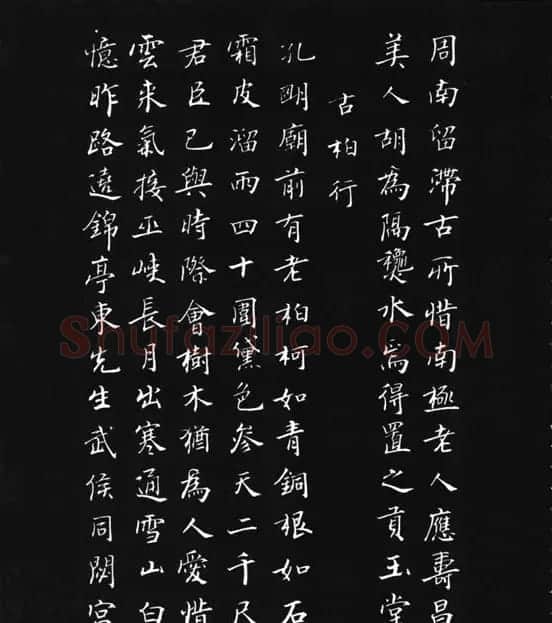 周南留滯古所惜南極老人應壽昌
美人胡為隔龝水焉得置之貢玉堂
古柏行
孔明廟前有老柏柯如青銅根如石
霜皮溜雨四十圍黛色參天二千尺
君臣已與時際會樹木猶為人愛惜
雲來氣接巫峽長月出寒通雪山白
憶昨路遶錦亭東先生武侯同閟宮
Shufaziliao.com